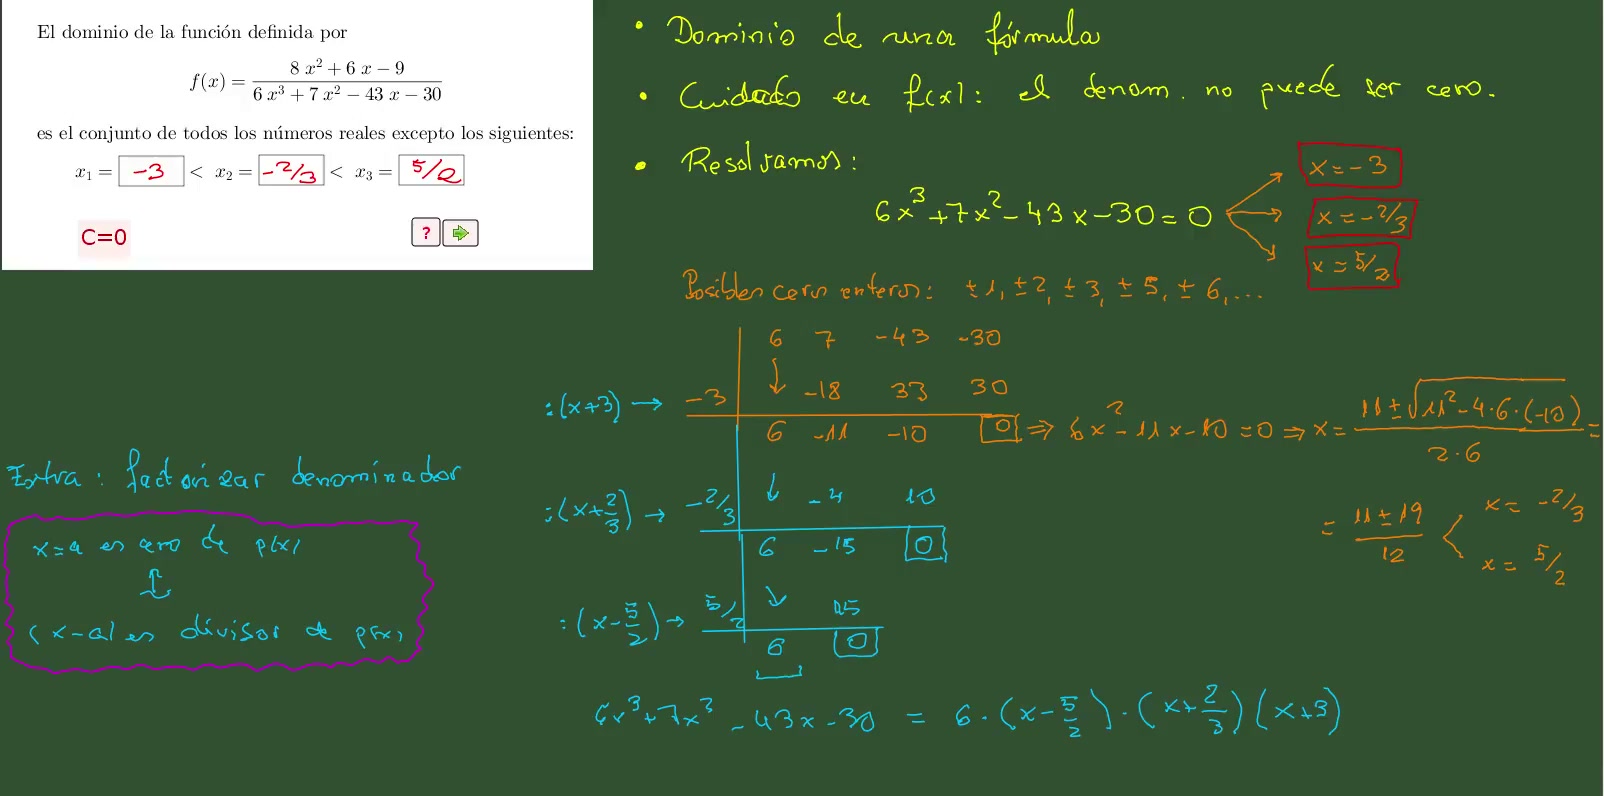 El dominio de la función definida por
f(x) = (8 x² + 6 x − 9) / (6 x³ + 7 x² − 43 x − 30)
es el conjunto de todos los números reales excepto los siguientes:
x₁ = -3 < x₂ = -2/3 < x₃ = 5/2
C=0
?
• Dominio de una fórmula
• Cuidado en f(x): el denom. no puede ser cero.
• Resolvamos:
6x³+7x²-43x-30=0
x=-3
x=-2/3
x=5/2
Posibles ceros enteros: ±1, ±2, ±3, ±5, ±6,...
6 7 -43 -30
:(x+3) → -3 ↓ -18 33 30
6 -11 -10 0 ⇒ 6x²-11x-10=0 ⇒ x= (11±√(11²-4·6·(-10))) / (2·6) =
= (11±19) / 12
x= -2/3
x= 5/2
:(x+2/3) → -2/3 ↓ -4 10
6 -15 0
:(x-5/2) → 5/2 ↓ 15
6 0
6x³+7x³-43x-30 = 6·(x-5/2)·(x+2/3)(x+3)
Extra: factorizar denominador
x=a es cero de p(x)
↕
(x-a) es divisor de p(x)